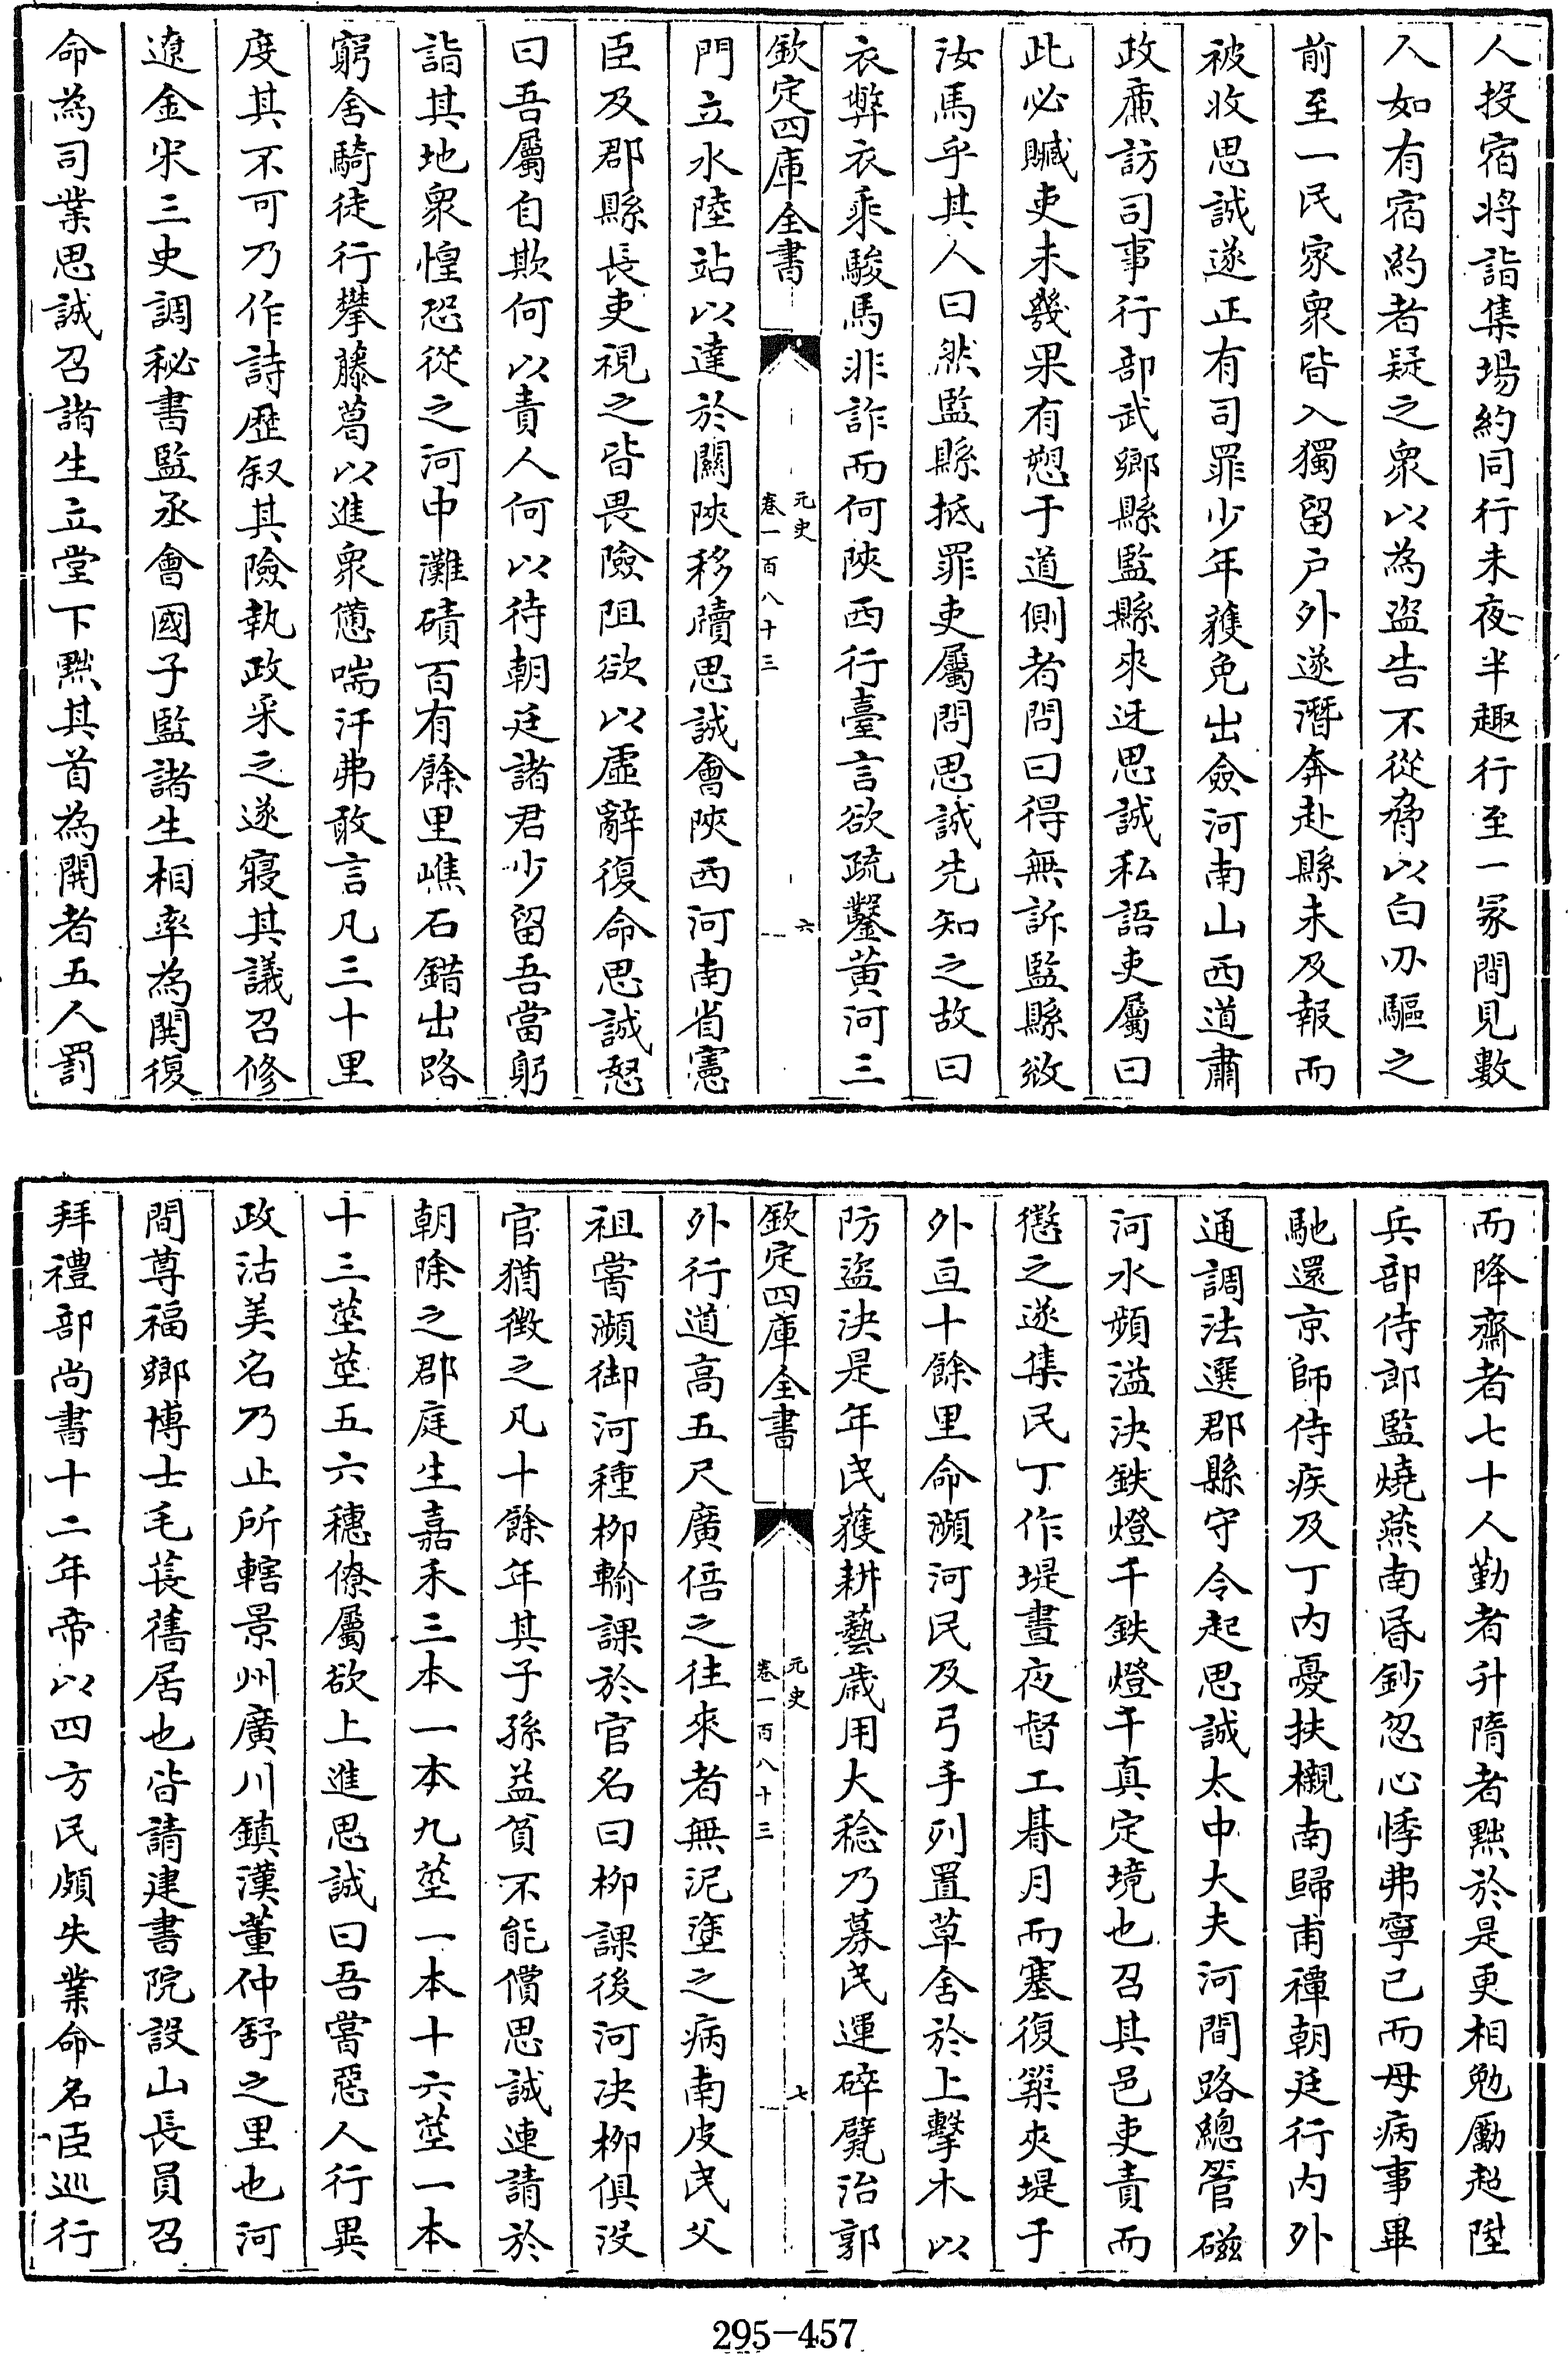 人投宿將詣集場約同行未夜半趣行至一冢間見數
入如有宿約者疑之衆以為盜告不從脅以白刃驅之
前至一民家衆皆入獨留户外遂潛奔赴縣未及報而
被收思誠遂正有司罪少年獲免出僉河南山西道肅
政亷訪司事行部武鄉縣監縣來迓思誠私語吏屬曰
此必贓吏未幾果有愬于道側者問曰得無訴監縣斂
汝馬乎其人曰然監縣抵罪吏屬問思誠先知之故曰
衣弊衣乘駿馬非詐而何陜西行臺言欲疏鑿黄河三
欽定四庫全書
元史
卷一百八十三
六
門立水陸站以達於關陜移牘思誠會陜西河南省憲
臣及郡縣長吏視之皆畏險阻欲以虛辭復命思誠怒
曰吾屬自欺何以責人何以待朝廷諸君少留吾當躬
詣其地衆惶恐從之河中灘磧百有餘里嶕石錯出路
窮舍騎徒行攀藤葛以進衆憊喘汗弗敢言凡三十里
度其不可乃作詩歷叙其險執政采之遂寢其議召修
遼金宋三史調秘書監丞會國子監諸生相率為閧復
命為司業思誠召諸生立堂下黜其首為閧者五人罰
而降齋者七十人勤者升隋者黜於是更相勉勵超陞
兵部侍郎監燒燕南昏鈔忽心悸弗寧已而母病事畢
馳還京師侍疾及丁内憂扶櫬南歸甫禫朝廷行内外
通調法選郡縣守令起思誠太中大夫河間路總管磁
河水頻溢決鉄燈干鉄燈干真定境也召其邑吏責而
懲之遂集民丁作堤晝夜督工朞月而塞復築夾堤于
外亘十餘里命瀕河民及弓手列置草舍於上擊木以
防盜決是年民獲耕藝歲用大稔乃募民運碎甓治郭
欽定四庫全書
元史
卷一百八十三
七
外行道高五尺廣倍之往來者無泥塗之病南皮民父
祖嘗瀕御河種栁輸課於官名曰栁課後河決栁俱没
官猶徵之凡十餘年其子孫益貧不能償思誠連請於
朝除之郡庭生嘉禾三本一本九莖一本十六莖一本
十三莖莖五六穗僚屬欲上進思誠曰吾嘗惡人行異
政沽美名乃止所轄景州廣川鎮漢董仲舒之里也河
間尊福鄉博士毛萇舊居也皆請建書院設山長員召
拜禮部尚書十二年帝以四方民頗失業命名臣巡行
295-457